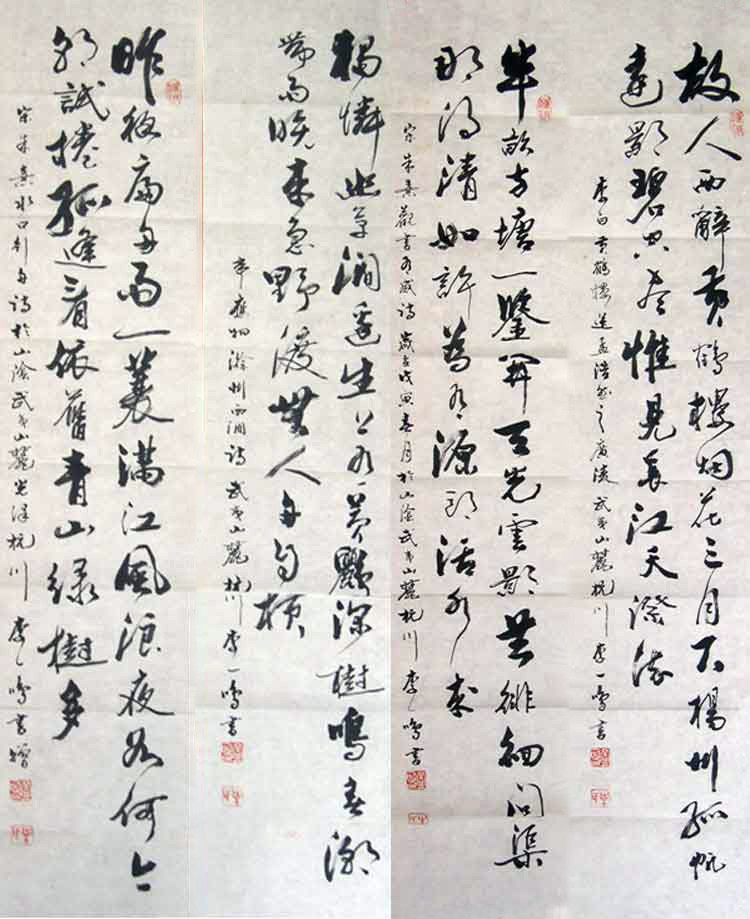 故人西辭黄鶴樓烟花三月下楊州孤帆
遠影碧空尽惟見長江天際流
李白黄鶴樓送孟浩然之廣陵 武夷山麓杭川 李一鳴書
半畝方塘一鑒開天光雲影共徘徊問渠
那得清如許為有源頭活水来
宋朱熹觀書有感詩 歲在戊寅春月於山陰武夷山麓杭川 李一鳴書
獨憐幽草澗邊生上有黄鸝深樹鳴春潮
帶雨晚来急野渡無人舟自横
韋應物滁州西澗詩 武夷山麓杭川 李一鳴書
昨夜扁舟雨一蓑滿江風浪夜如何今
朝試捲孤篷看依舊青山緑樹多
宋朱熹水口行舟詩於山陰武夷山麓光澤杭川 李一鳴書贈